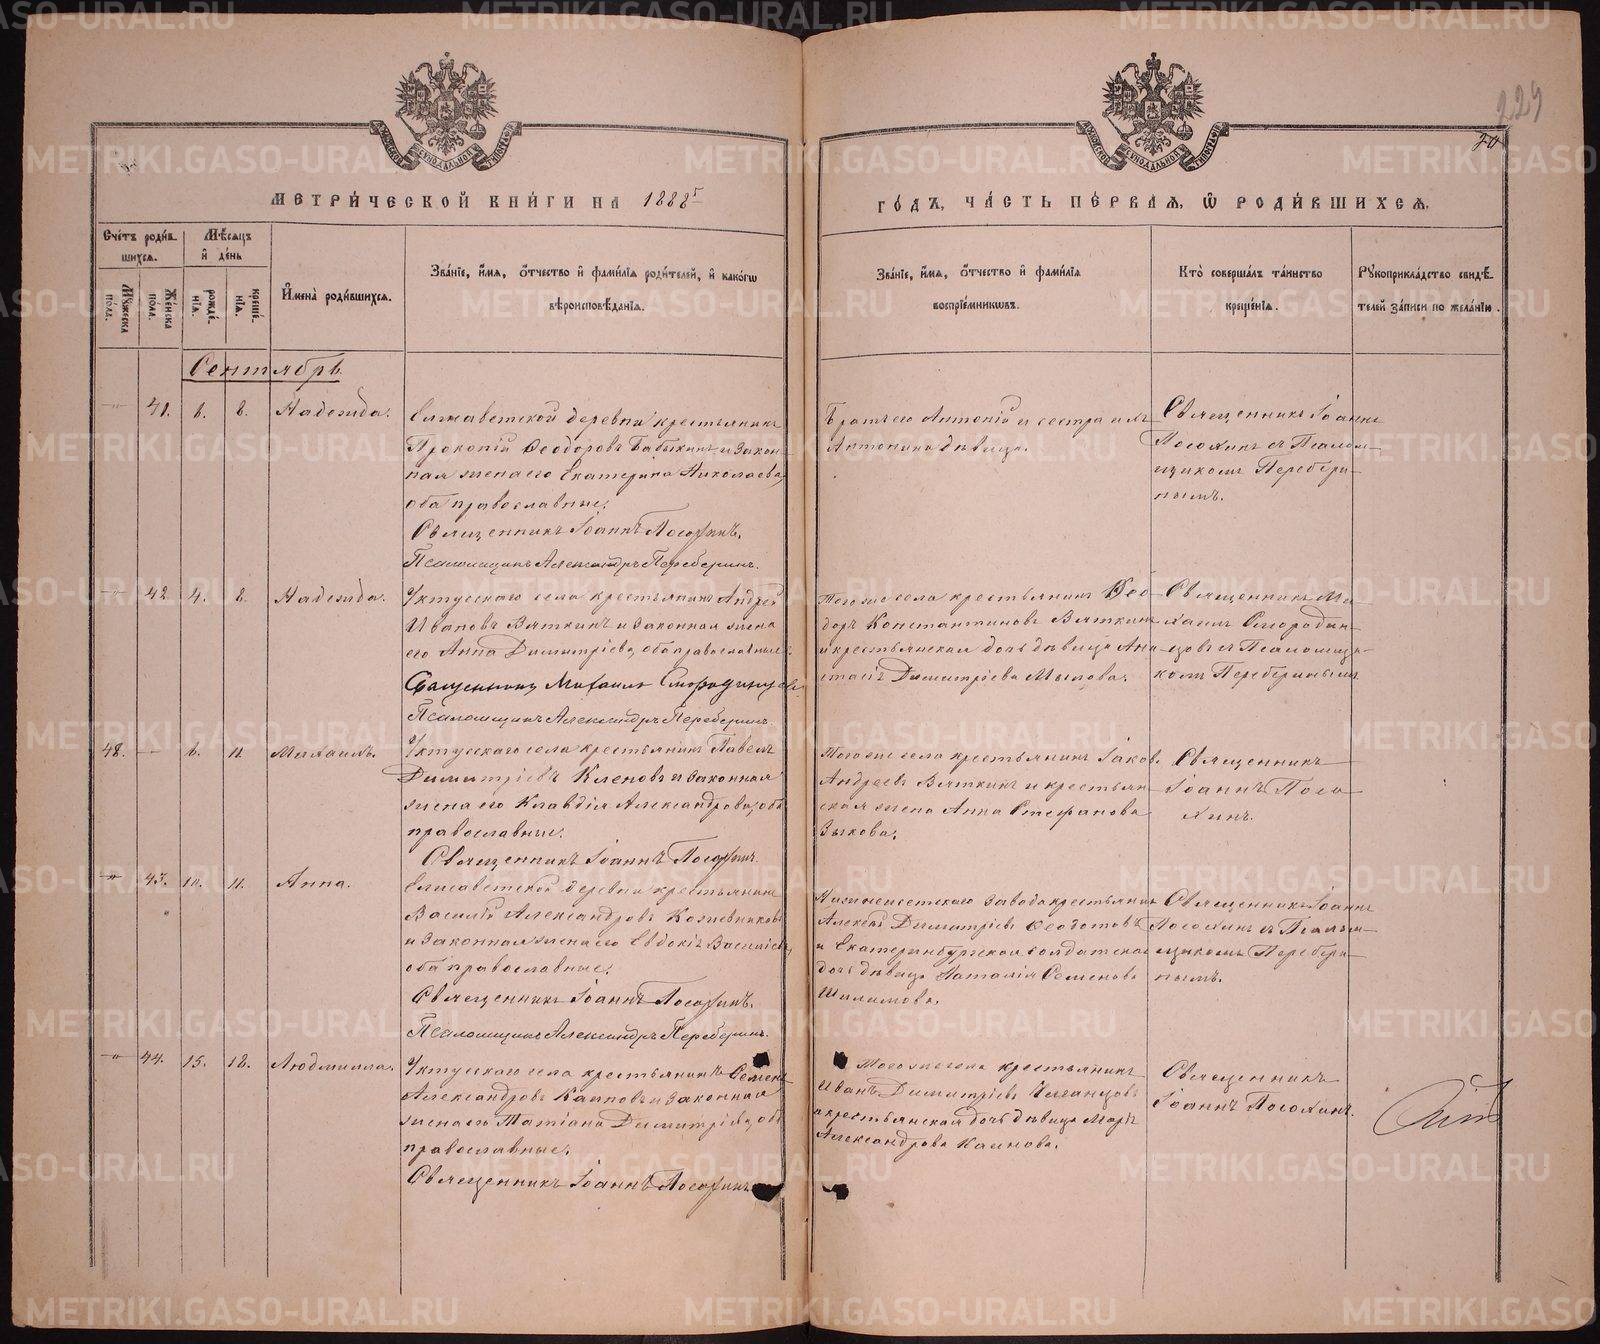 229
20
МЕТРИ́ЧЕСКОЙ КНИ́ГИ НА 1888 г
ГО́ДЪ, ЧА́СТЬ ПЕ́РВАЯ, Ѿ РОДИ́ВШИХСЯ.
Сче́тъ роди́вшихся.
Му́жеска пола.
Же́нска пола.
Мѣ́сяцъ и де́нь
рожде́нїя.
креще́нїя.
И҆мена̀ роди́вшихся.
Зва́нїе, и҆́мя, ѻ҆́тчество и҆ фами́лїя роди́телей, и҆ како́гѡ
вѣроисповѣ́данїя.
Зва́нїе, и҆́мя, ѻ҆́тчество и҆ фами́лїя
воспрїе́мникѡвъ.
Кто̀ соверша́лъ та́инство
креще́нїя.
Рꙋкоприкла́дство свидѣ́-
телей за́писи по жела́нїю.
Сентябрь
41. 6. 8. Надежда.
Елисаветской деревни крестьянинъ
Прокопій Ѳеодоровъ Бабыкинъ и закон-
ная жена его Екатерина Николаева,
оба православные.
Священникъ Іоаннъ Посохинъ.
Псаломщикъ Александръ Переберинъ.
Братъ его Антоній и сестра ихъ
Антонина дѣвица.
Священникъ Іоаннъ
Посохинъ съ Псалом-
щикомъ Перебери-
нымъ.
42 4. 8. Надежда.
Уктусскаго села крестьянинъ Андрей
Ивановъ Вяткинъ и законная жена
его Анна Димитріева, оба православные.
Священникъ Михаилъ Смородинцевъ
Псаломщикъ Александръ Переберинъ.
Того же села крестьянинъ Ѳео-
доръ Константиновъ Вяткинъ
и крестьянская дочь дѣвица Ана-
стасія Димитріева Мылова.
Священникъ Ми-
хаилъ Смородин-
цовъ съ Псаломщи-
комъ Переберинымъ
48. 6. 11. Михаилъ.
Уктусскаго села крестьянинъ Павелъ
Димитріевъ Кленовъ и законная
жена его Клавдія Александрова, оба
православные.
Священникъ Іоаннъ Посохинъ.
Того же села крестьянинъ Іаковъ
Андреевъ Вяткинъ и крестьян-
ская жена Анна Стефанова
Зыкова.
Священникъ
Іоаннъ Посо-
хинъ.
43. 10. 11. Анна.
Елисаветской деревни крестьянинъ
Василій Александровъ Кожевниковъ
и законная жена его Евдокія Василіева,
оба православные.
Священникъ Іоаннъ Посохинъ.
Псаломщикъ Александръ Переберинъ.
Нижнеисетскаго завода крестьянинъ
Алексѣй Димитріевъ Ѳеодотовъ
и Екатеринбургская солдатская
дочь дѣвица Наталія Семенова
Шилимова.
Священникъ Іоаннъ
Посохинъ съ Псалом-
щикомъ Перебери-
нымъ.
44. 15. 18. Людмилла.
Уктусскаго села крестьянинъ Семенъ
Александровъ Каиновъ и законная
жена его Татіана Димитріева, оба
православные.
Священникъ Іоаннъ Посохинъ
Того же села крестьянинъ
Иванъ Димитріевъ
и крестьянская дочь дѣвица Марія
Александрова Каинова.
Священникъ
Іоаннъ Посохинъ.